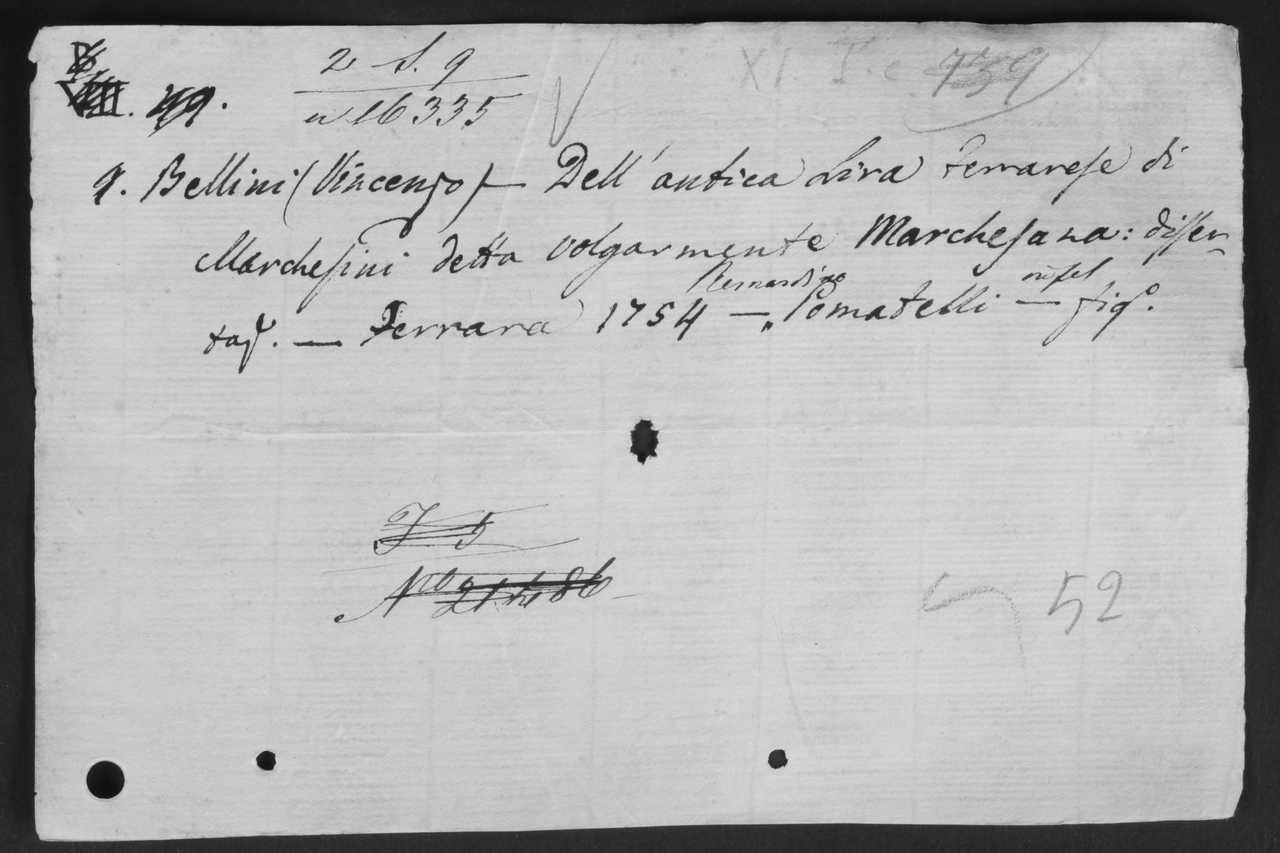 2 S. 9
XI I. e 739
49.
n 16335
9. Bellini (Vincenzo) — Dell' antica Lira Ferrarese di
Marchesini detta volgarmente Marchesana: disser-
Bernardino
taz. — Ferrara 1754 — Pomatelli — fig.º
J 5
Nro 21486
52